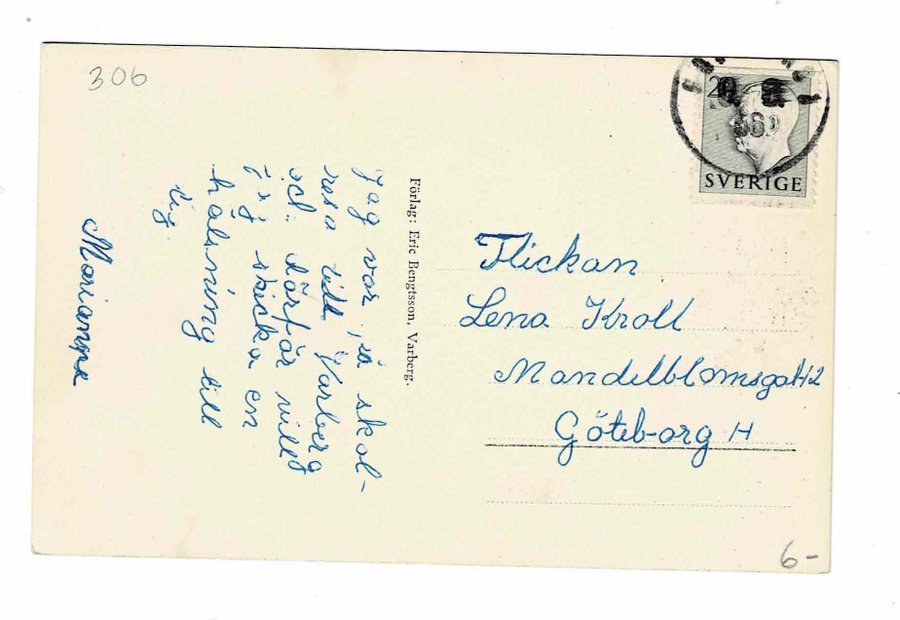 306
20
SVERIGE
Förlag: Eric Bengtsson, Varberg.
Jag var på skol-
resa till Varberg
och därför vill
jag skicka en
hälsning till
dig.
Marianne
Flickan
Lena Kroll
Mandelblomsgat 12
Göteborg H
6-